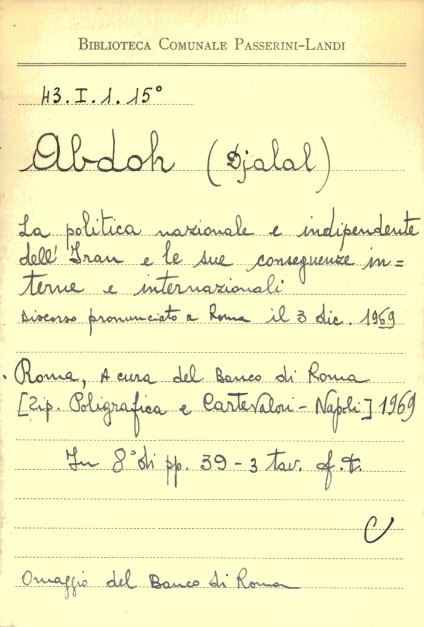 BIBLIOTECA COMUNALE PASSERINI-LANDI
43.I.1.15°
Abdoh (Djalal)
La politica nazionale e indipendente
dell'Iran e le sue conseguenze in=
terne e internazionali
Discorso pronunciato a Roma il 3 dic. 1969
Roma, A cura del Banco di Roma
[Tip. Poligrafica e CarteValori - Napoli] 1969
In 8° di pp. 39 - 3 tav. f.t.
Omaggio del Banco di Roma